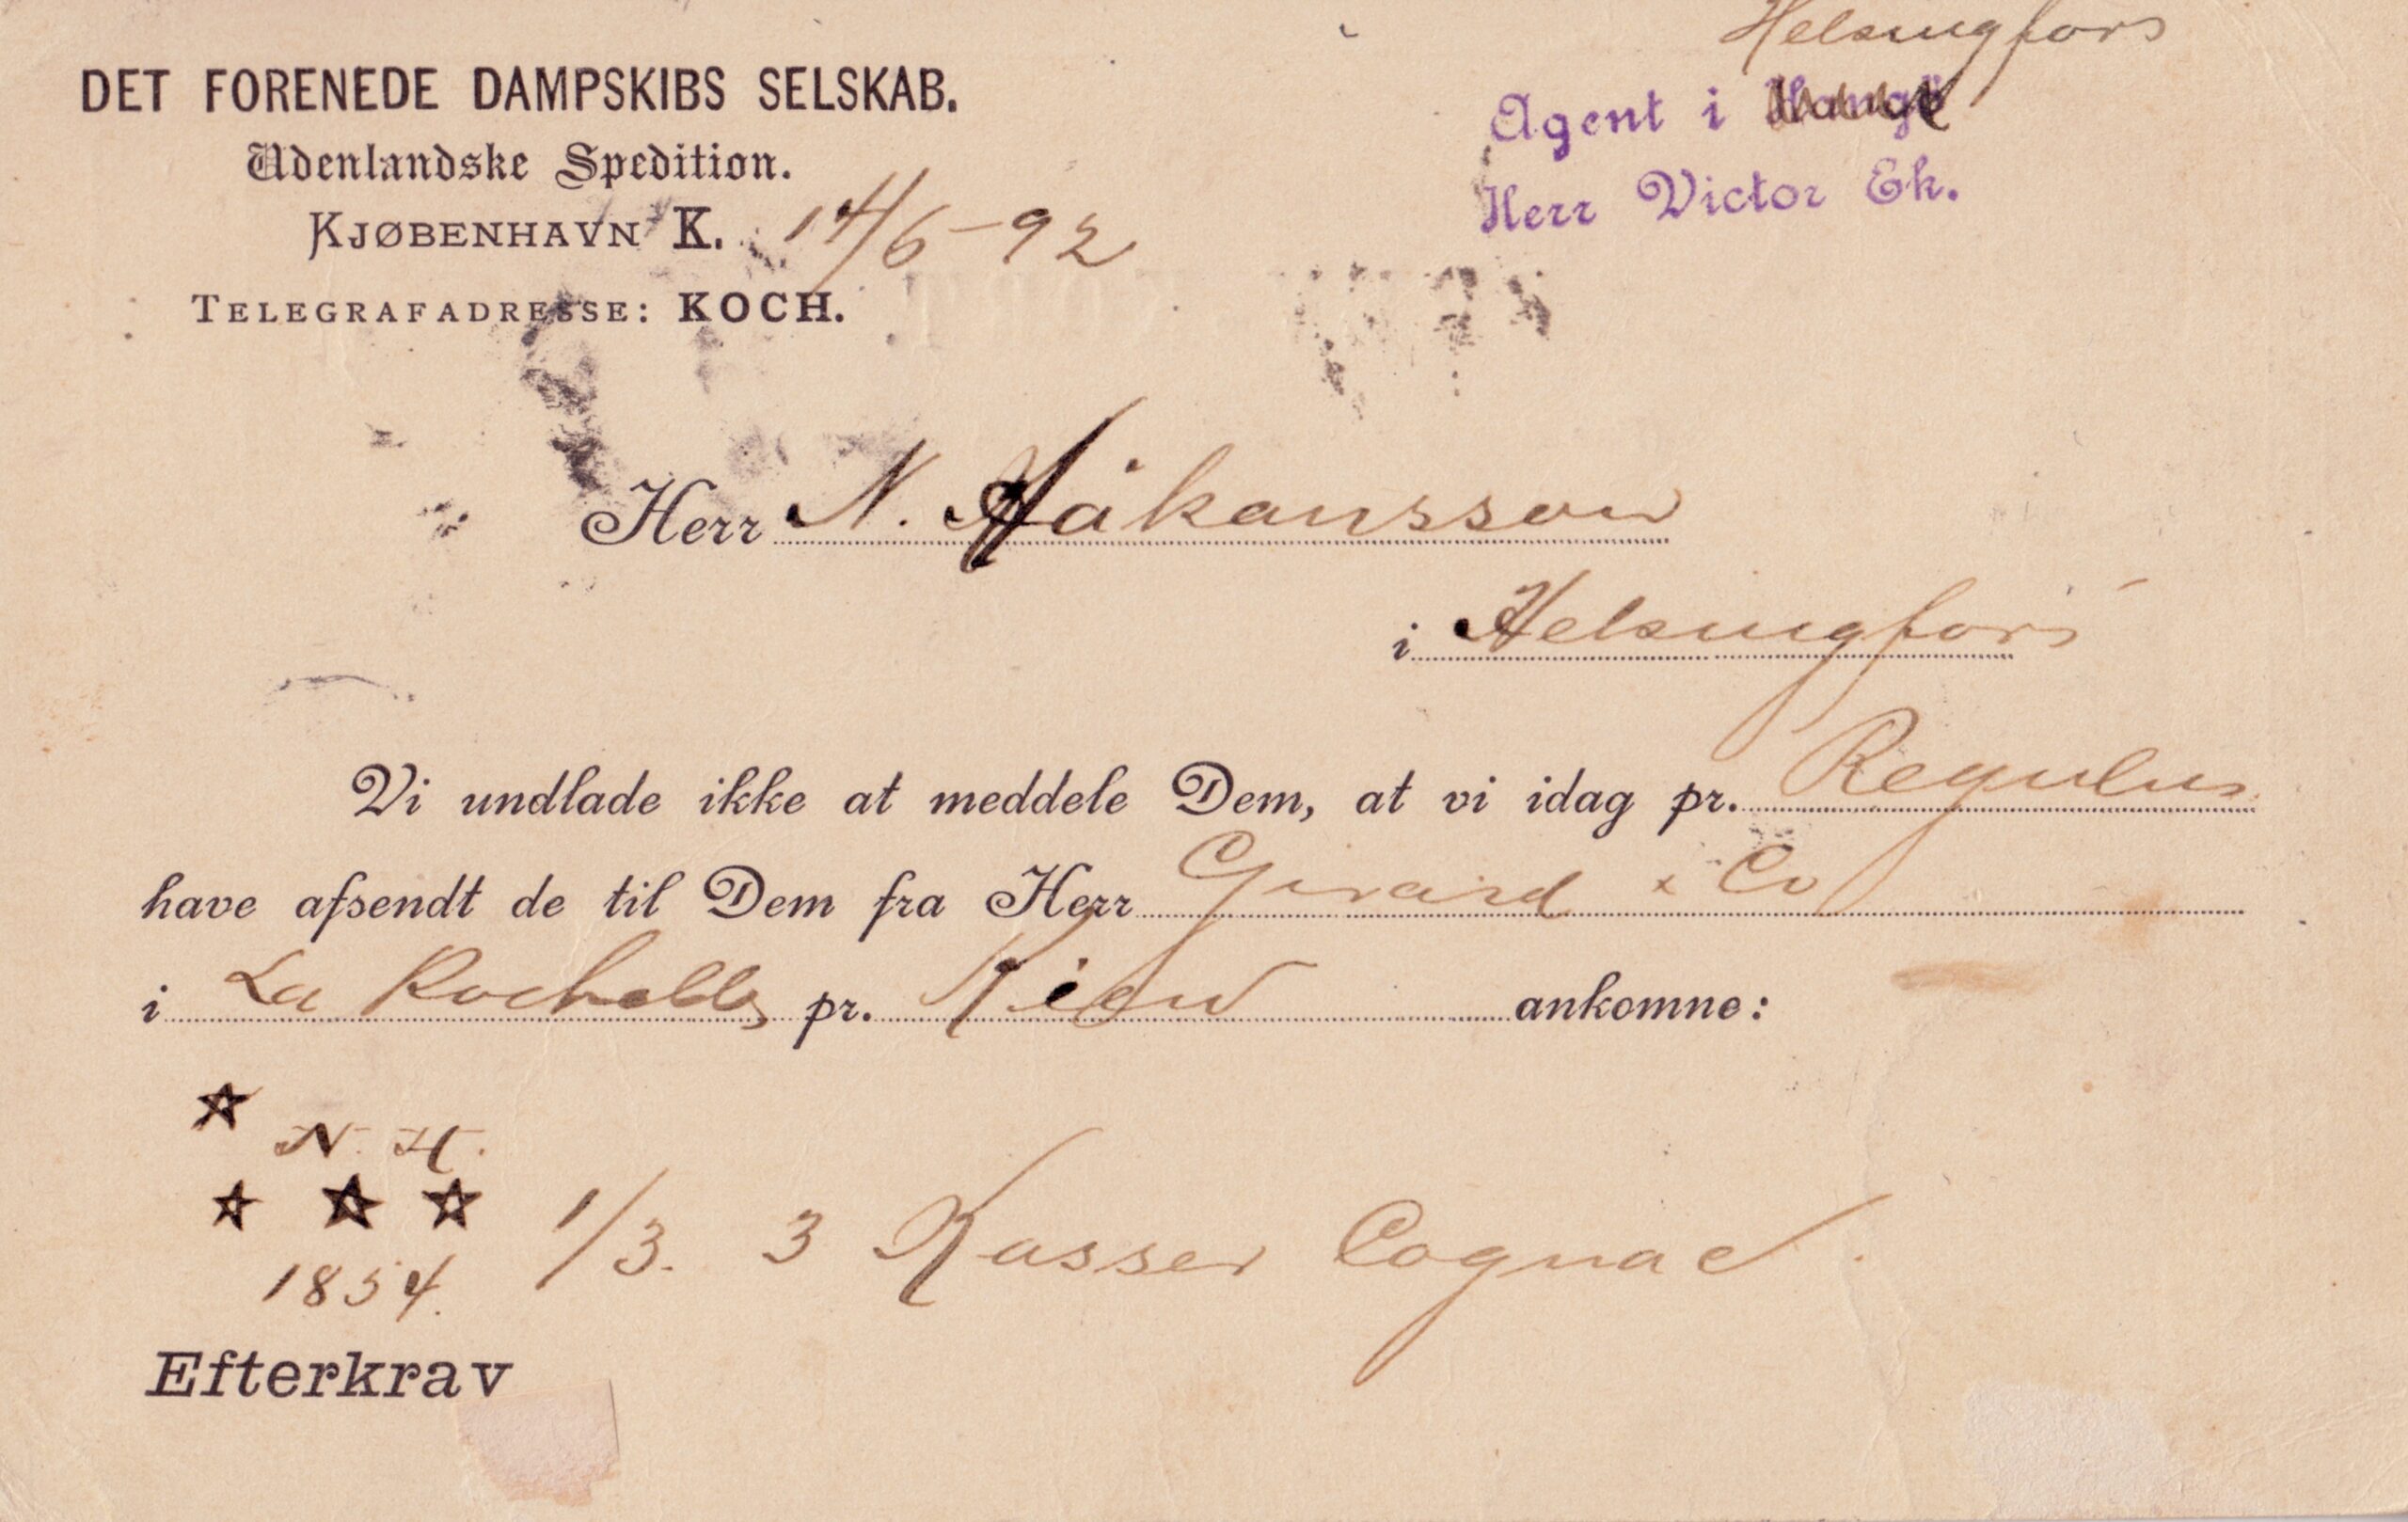 Helsingfors
DET FORENEDE DAMPSKIBS SELSKAB.
Udenlandske Spedition.
KJØBENHAVN K. 14/6-92
TELEGRAFADRESSE: KOCH.
Agent i Hangö
Herr Victor Ek.
Herr N. Håkansson
i Helsingfors
Vi undlade ikke at meddele Dem, at vi idag pr. Regulus
have afsendt de til Dem fra Herr Girard & Co
i La Rochelle pr. Kiew ankomne:
N. H.
1/3. 3 Kasser Cognac.
1854.
Efterkrav